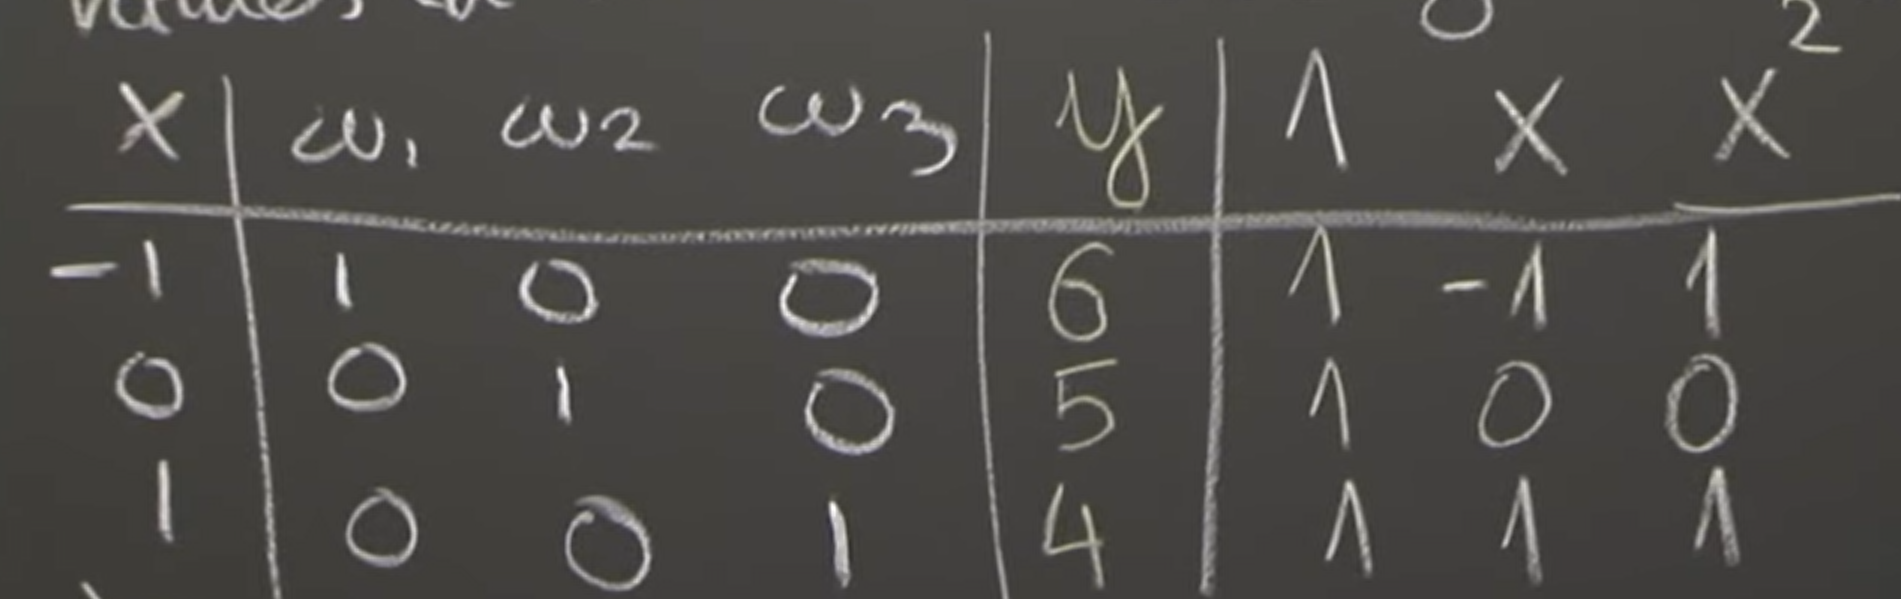 values
x ω₁ ω₂ ω₃ y 1 x x²
-1 1 0 0 6 1 -1 1
0 0 1 0 5 1 0 0
1 0 0 1 4 1 1 1